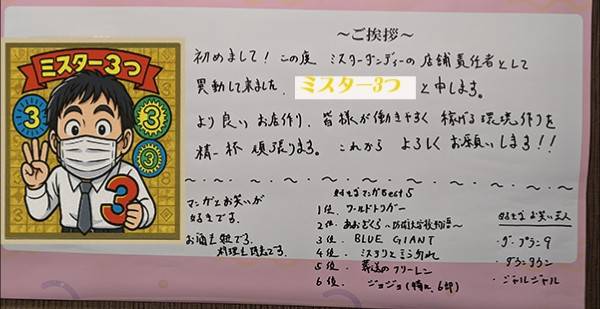 ～ご挨拶～
初めまして！この度 ミスターダンディーの店舗責任者として
異動して来ました、ミスター3つ と申します。
より良いお店作り、皆様が働きやすく稼げる環境作りを
精一杯頑張ります。これから よろしくお願いします!!
ミスター3つ
3
3
3
3
マンガとお笑いが
好きです。
お酒も
料理も
です。
好きなマンガBest5
1位. ワールドトリガー
2位. あおざくら ～防衛大学校物語～
3位. BLUE GIANT
4位. ミステリと言う勿れ
5位. 葬送のフリーレン
6位. ジョジョ(特に、6部)
好きなお笑い芸人
・ザ・プラン9
・ダウンタウン
・ジャルジャル